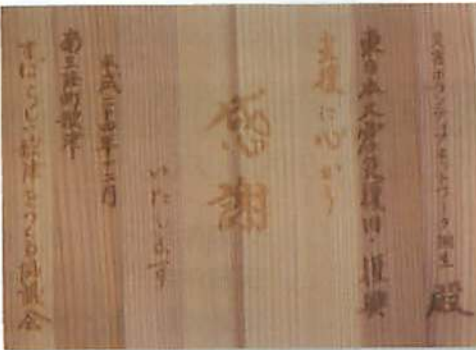 災害ボランティアネットワーク桐生 殿
東日本大震災復旧・復興
支援に心から
感謝
いたします
平成二十四年十二月
南三陸町歌津
すばらしい歌津をつくる協議会